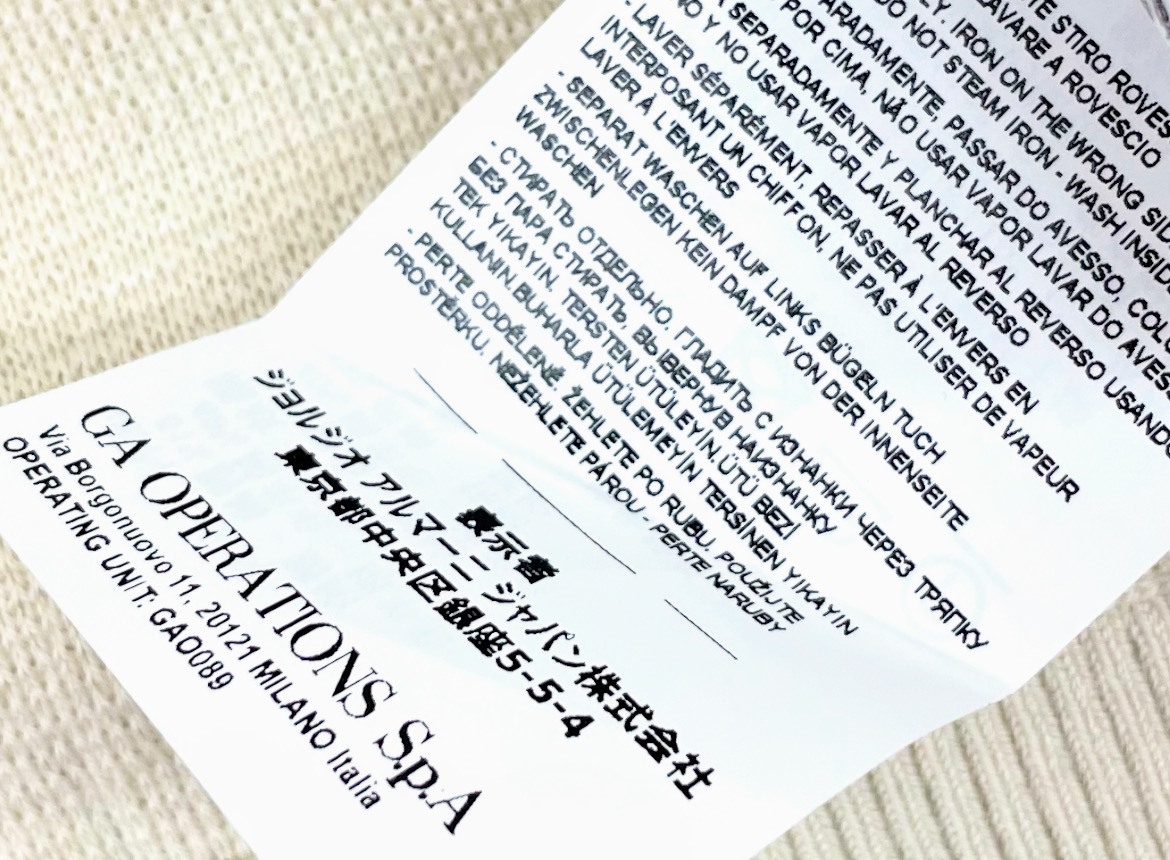 TE STIRO ROVES
LAVARE A ROVESCIO
LY. IRON ON THE WRONG SID
DO NOT STEAM IRON - WASH INSID
ARADAMENTE, PASSAR DO AVESSO, COLO
POR CIMA, NÃO USAR VAPOR LAVAR DO AVESS
SEPARADAMENTE Y PLANCHAR AL REVERSO USANDO
NO Y NO USAR VAPOR LAVAR AL REVERSO
- LAVER SÉPARÉMENT, REPASSER À L'ENVERS EN
INTERPOSANT UN CHIFFON, NE PAS UTILISER DE VAPEUR
LAVER À L'ENVERS
- SEPARAT WASCHEN AUF LINKS BÜGELN TUCH
ZWISCHENLEGEN KEIN DAMPF VON DER INNENSEITE
WASCHEN
- СТИРАТЬ ОТДЕЛЬНО, ГЛАДИТЬ С ИЗНАНКИ ЧЕРЕЗ ТРЯПКУ
БЕЗ ПАРА СТИРАТЬ, ВЫВЕРНУВ НАИЗНАНКУ
TEK YIKAYIN. TERSTEN ÜTÜLEYİN ÜTÜ BEZİ
KULLANIN.BUHARLA ÜTÜLEMEYİN TERSİNEN YIKAYIN
- PERTE ODDĚLENĚ, ŽEHLETE PO RUBU, POUŽIJTE
PROSTĚRKU, NEŽEHLETE PÁROU - PERTE NARUBY
表示者
ジョルジオ アルマーニ ジャパン株式会社
東京都中央区銀座5-5-4
GA OPERATIONS S.p.A
Via Borgonuovo 11, 20121 MILANO Italia
OPERATING UNIT: GAO089